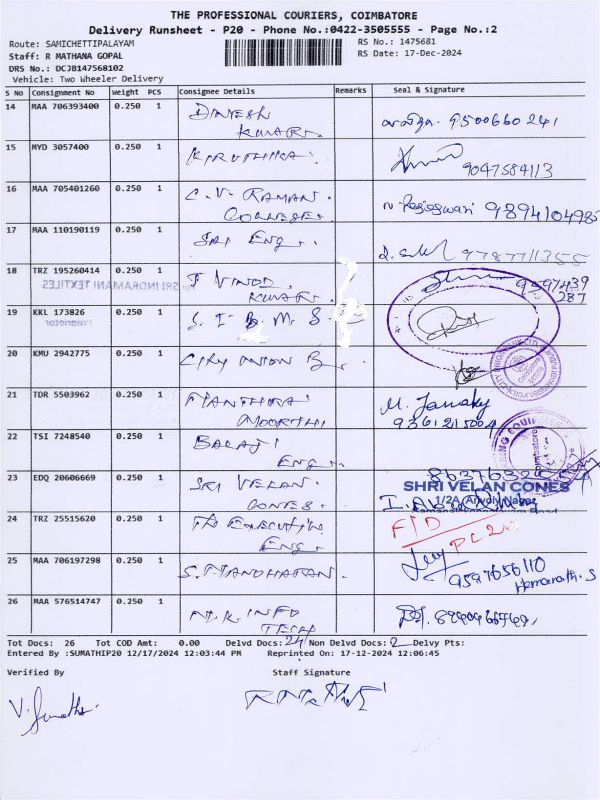 THE PROFESSIONAL COURIERS, COIMBATORE
Delivery Runsheet - P20 - Phone No.:0422-3505555 - Page No.:2
Route: SAMICHETTIPALAYAM RS No.: 1475681
Staff: R MATHANA GOPAL RS Date: 17-Dec-2024
DRS No.: DCJB147568102
Vehicle: Two Wheeler Delivery
S No Consignment No Weight PCS Consignee Details Remarks Seal & Signature
14 MAA 706393400 0.250 1 DINESH
KUMAR. 9500660241
15 MYD 3057400 0.250 1 KIRUTHIKA. 9047584113
16 MAA 705401260 0.250 1 C.V. RAMAN.
COLLEGE. 9894104985
17 MAA 110190119 0.250 1 SRI ENG. 9787711355
18 TRZ 195260414 0.250 1 J VINOD.
KUMAR.
SRI INDRAMANI TEXTILES
287
19 KKL 173826 0.250 1 S. I B M S
Proprietor
20 KMU 2942775 0.250 1 CITY UNION B.
21 TDR 5503962 0.250 1
MOORTHI M. Janaky
22 TSI 7248540 0.250 1 BALAJI
ENG.
23 EDQ 20606669 0.250 1 SRI VELAN.
CONES.
SHRI VELAN CONES
24 TRZ 25515620 0.250 1 THE EXECUTIVE
ENG.
25 MAA 706197298 0.250 1 S. MANOHARAN. 9597656110
Hemanath.S
26 MAA 576514747 0.250 1 N.K. INFO
TECH
Tot Docs: 26 Tot COD Amt: 0.00 Delvd Docs: 24 Non Delvd Docs: 2 Delvy Pts:
Entered By :SUMATHIP20 12/17/2024 12:03:44 PM Reprinted On: 17-12-2024 12:06:45
Verified By Staff Signature
V. Sumathi